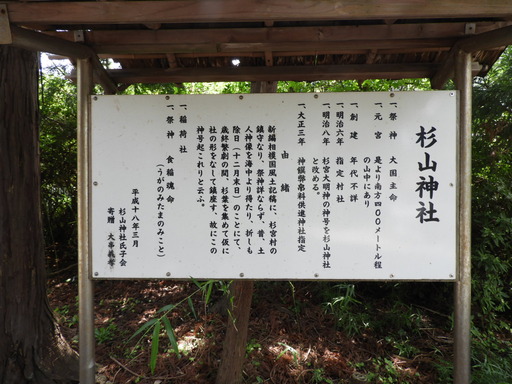 杉山神社
一、祭神 大国主命
一、元宮 是より南方四〇〇メートル程
の山中にあり
一、創建 年代不詳
一、明治六年 指定村社
一、明治八年 杉宮大明神の神号を杉山神社
と改める。
一、大正三年 神饌幣帛料供進神社指定
由緒
新編相模国風土記稿に、杉宮村の
鎮守なり、祭神詳ならず、昔、土
人神像を海中より得たり、折しも
除日(十二月末日)のことにて、
歳終繁劇の間、杉葉を集めて仮に
社の形をなして鎮座す、故にこの
神号起これりと云ふ。
一、稲荷社
一、祭神 食稲魂命
(うがのみたまのみこと)
平成十八年三月
杉山神社氏子会
寄贈